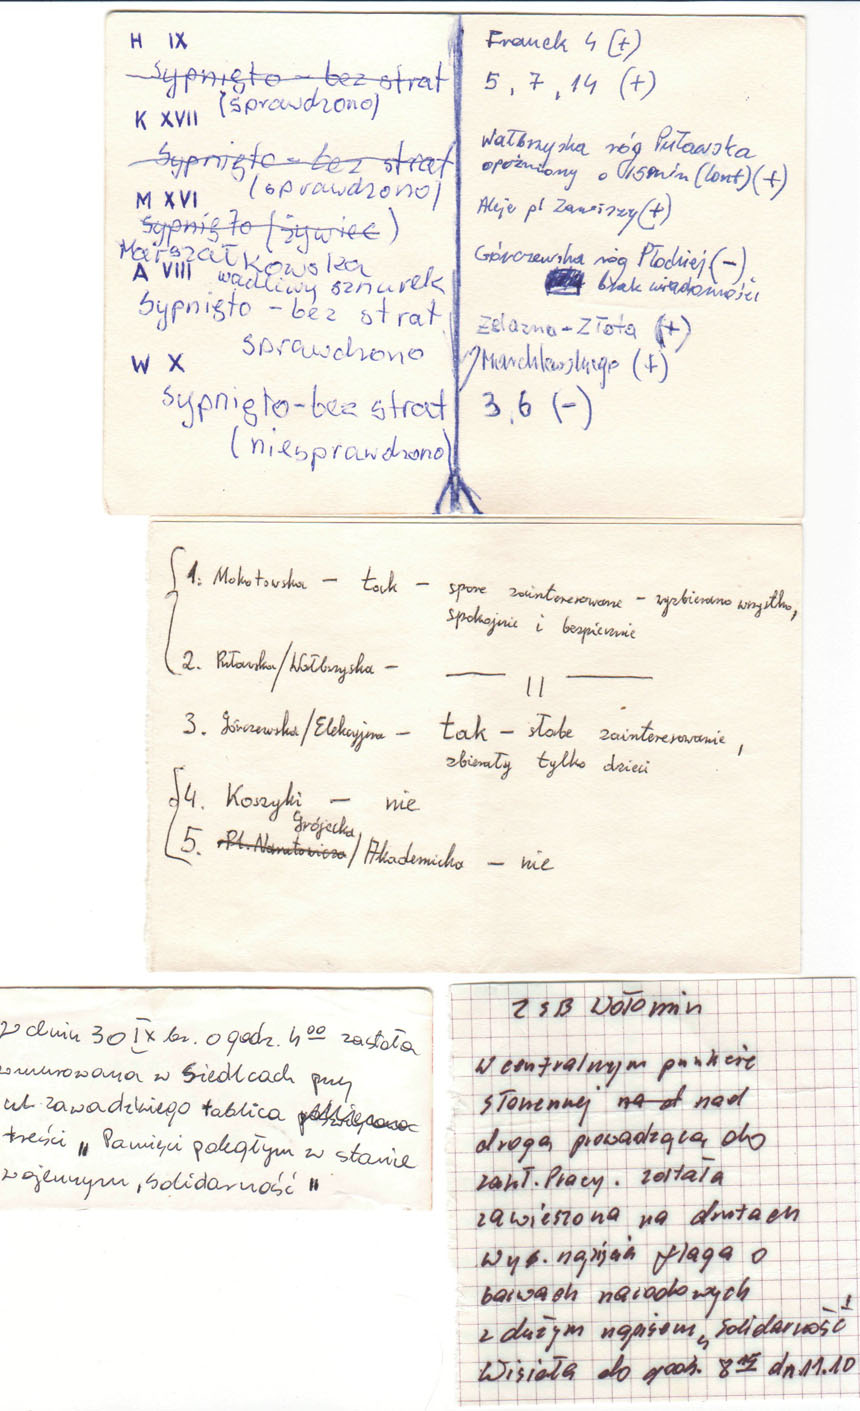 H IX
Sypnięto - bez strat
(sprawdzono)
K XVII
Sypnięto - bez strat
(sprawdzono)
M XVI
Sypnięto (żywiec)
Marszałkowska
A VIII wadliwy sznurek
Sypnięto - bez strat
sprawdzono
W X
Sypnięto - bez strat
(niesprawdzono)
Franck 4 (+)
5, 7, 14 (+)
Wałbrzyska róg Puławska
opóźniony o 15 min (lont) (+)
Aleje pl Zawiszy (+)
Górczewska róg Płockiej (-)
brak wiadomości
Żelazna - Złota (+)
Marchlewskiego (+)
3, 6 (-)
1. Mokotowska - tak - spore zainteresowane - wyzbierano wszystko,
spokojnie i bezpiecznie
2. Puławska/Wałbrzyska - — 11 —
3. Górczewska/Elekcyjna - tak - słabe zainteresowanie,
zbierały tylko dzieci
4. Koszyki - nie
Grójecka
5. Pl. Narutowicza/Akademicka - nie
W dniu 30 IX br. o godz. 4 00 została
wmurowana w Siedlcach przy
ul. Zawadzkiego tablica
treści „Pamięci poległym w stanie
wojennym, Solidarność"
Z S B Wołomin
W centralnym punkcie
Słonecznej na d nad
drogą prowadzącą do
zakł. Pracy. została
zawieszona na drutach
wys. napięcia flaga o
barwach narodowych
z dużym napisem „Solidarność"
Wisiała do godz. 8 15 dn 11.10